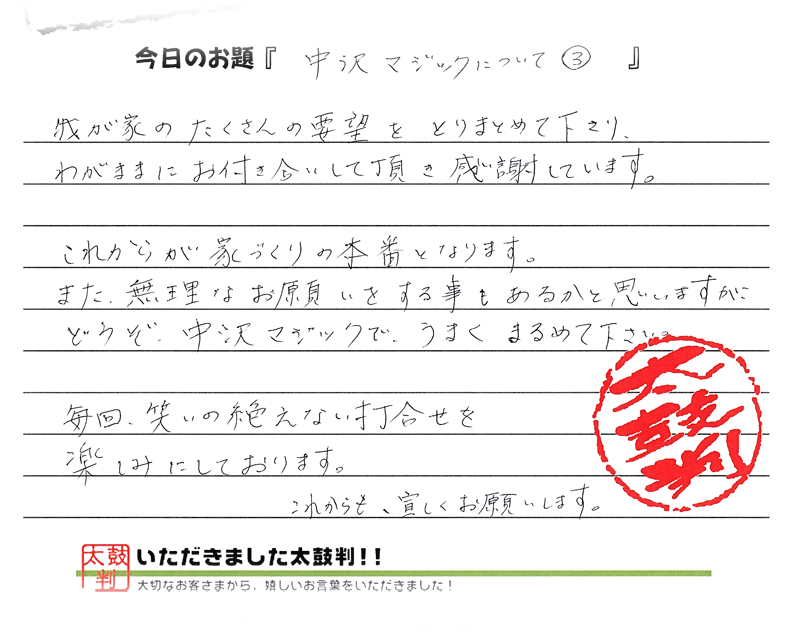 今日のお題『 中沢マジックについて③ 』
我が家のたくさんの要望をとりまとめて下さり、
わがままにお付き合いして頂き感謝しています。
これからが家づくりの本番となります。
また、無理なお願いをする事もあるかと思いますが
どうぞ、中沢マジックで、うまくまるめて下さい。
毎回、笑いの絶えない打合せを
楽しみにしております。
これからも、宜しくお願いします。
太鼓判
太鼓判
いただきました太鼓判!!
大切なお客さまから、嬉しいお言葉をいただきました!